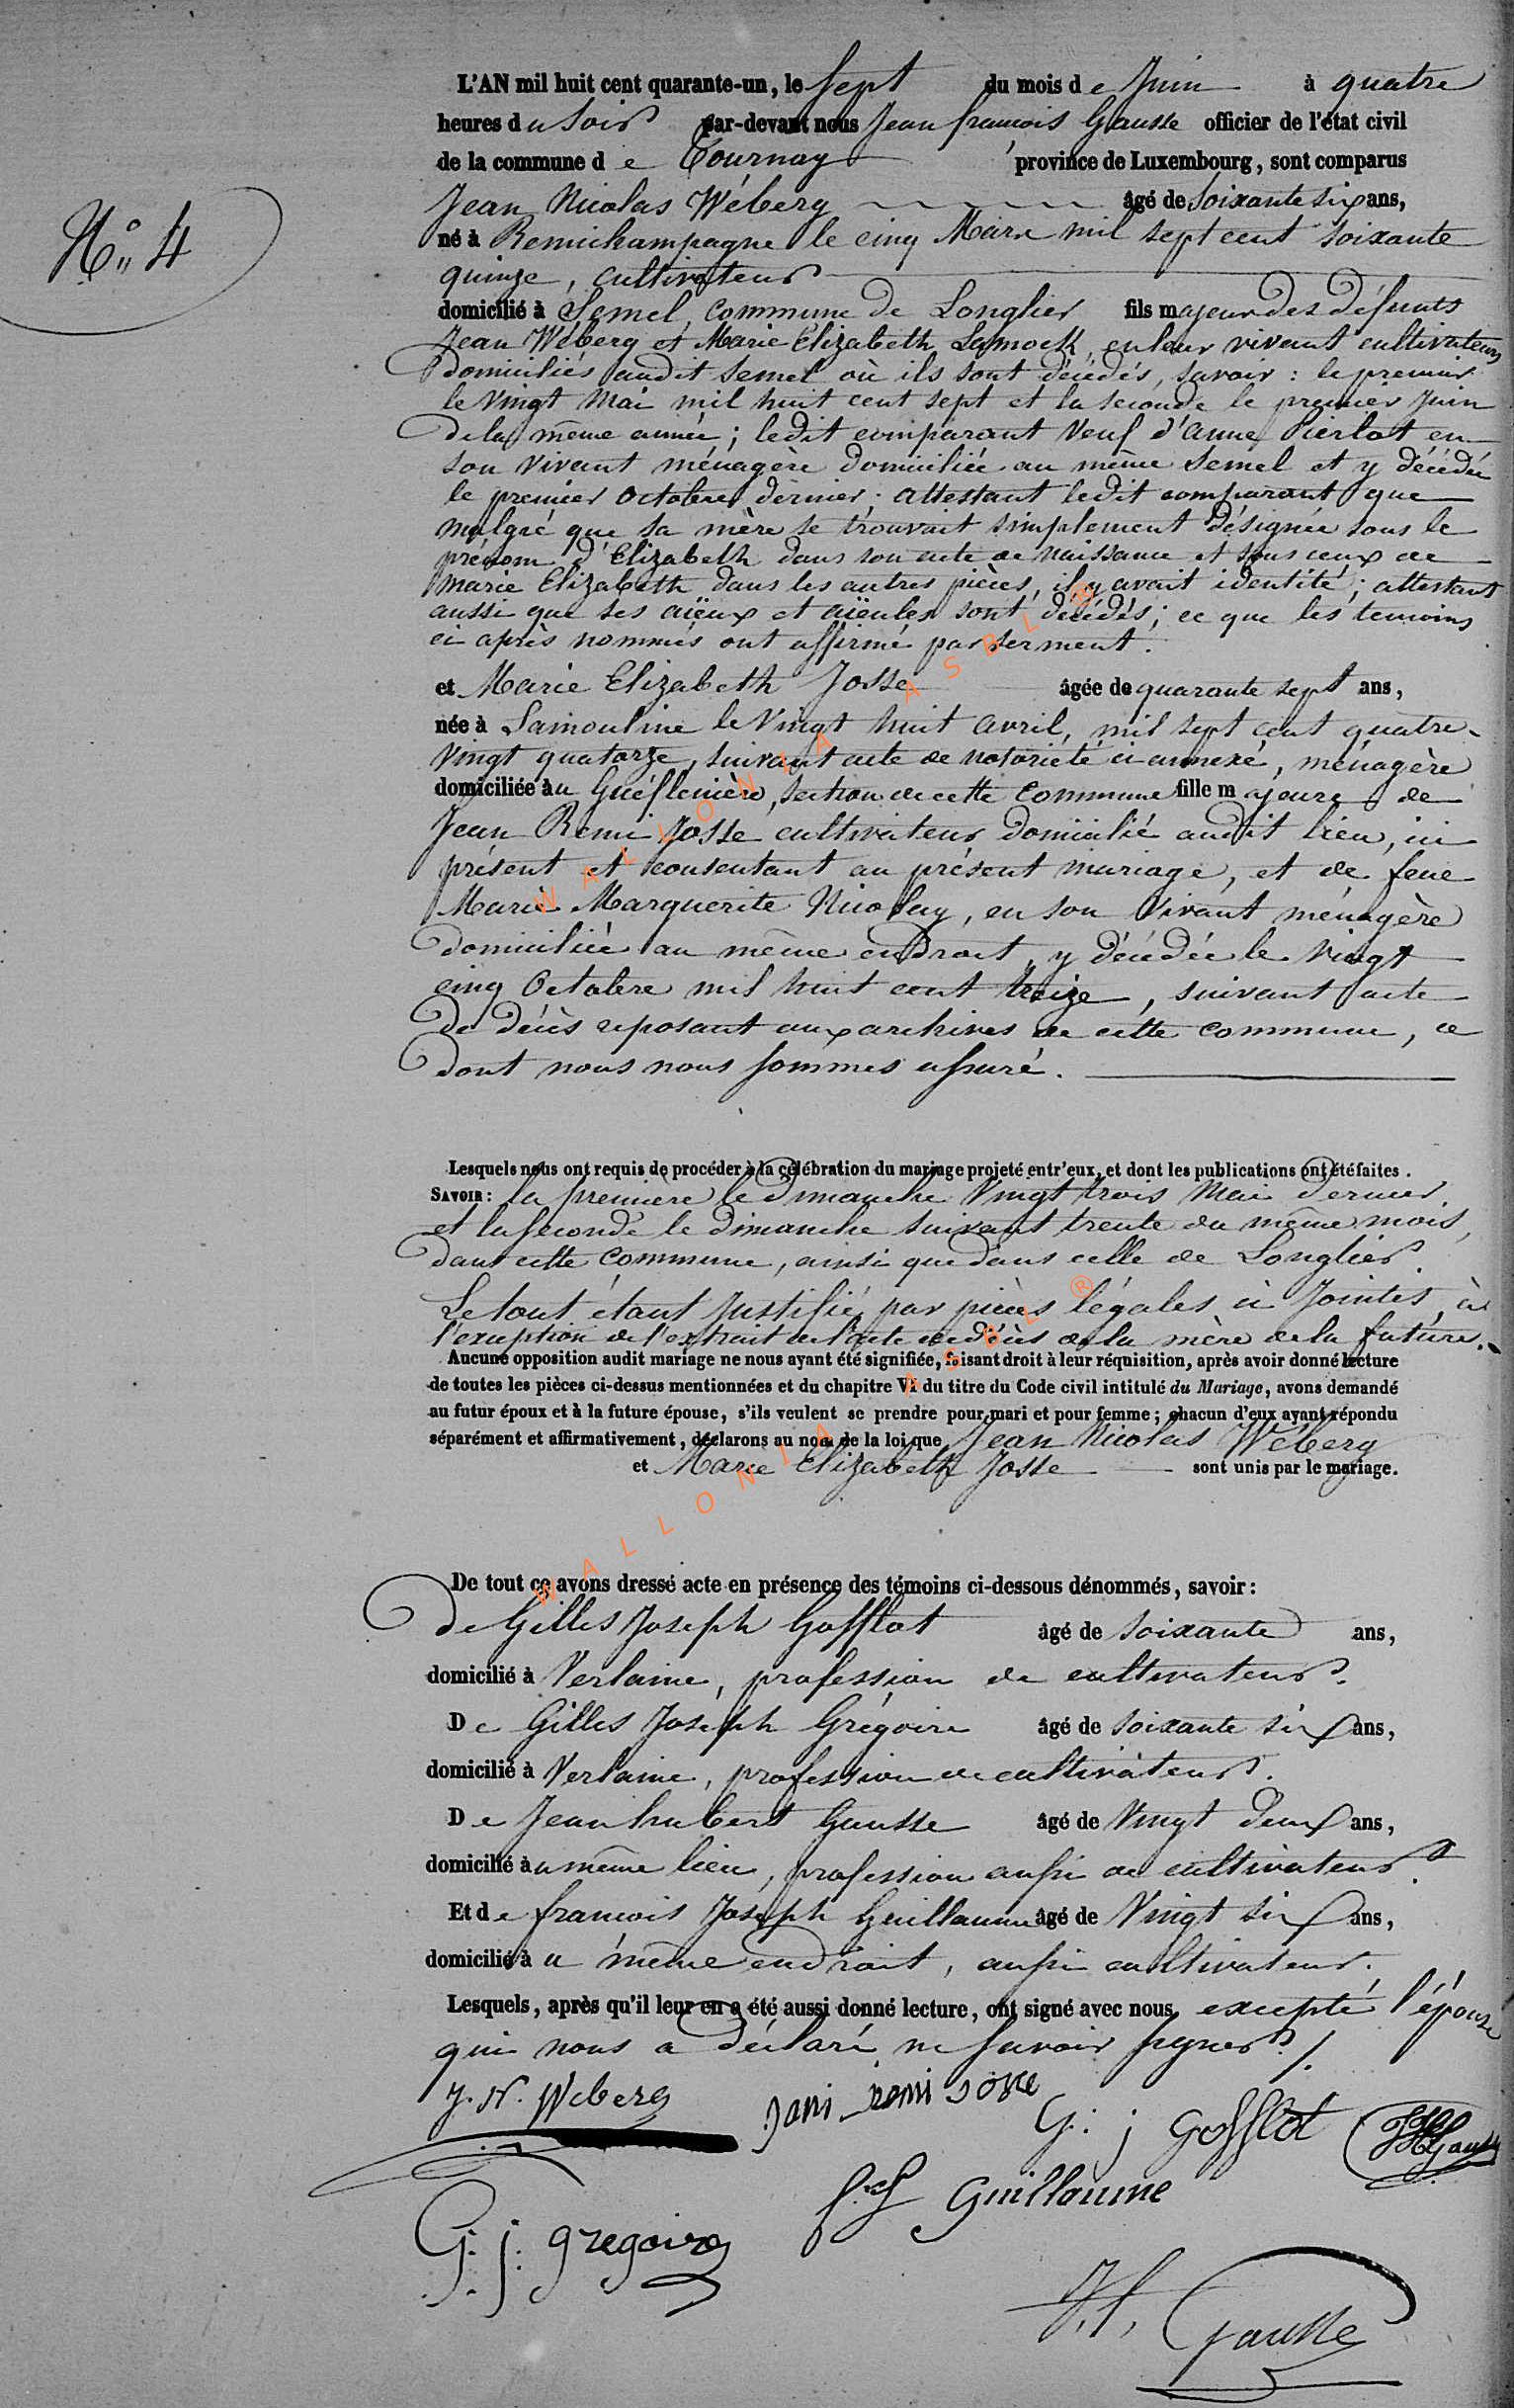 L'AN mil huit cent quarante-un, le sept du mois de Juin à quatre
heures du soir par-devant nous Jean francois Gausse officier de l'état civil
de la commune de Tournay province de Luxembourg, sont comparus
Jean Nicolas Wébery âgé de soixante six ans,
N° 4
né à Remichampagne le cinq Mars mil sept cent soixante
quinze, cultivateur
domicilié à Semel, commune de Longlier fils majeur des défunts
Jean Wébery et Marie Elizabeth Lamock, en leur vivant cultivateurs
domiciliés audit Semel où ils sont décédés, savoir : le premier
le vingt Mai mil huit cent sept et la seconde le premier Juin
de la même année ; ledit comparant veuf d'anne Pierlot en
son vivant ménagère domiciliée au même Semel et y décédée
le premier octobre dernier ; attestant ledit comparant que
malgré que sa mère se trouvait simplement désignée sous le
prénom d'Elizabeth dans son acte de naissance et sous ceux de
marie Elizabeth dans les autres pièces, il y avait identité ; attestant
aussi que ses aïeux et aïeules sont décédés ; ce que les temoins
ci après nommés ont affirmé par serment.
et Marie Elizabeth Josse âgée de quarante sept ans,
née à Lamouline le vingt huit avril, mil sept cent quatre-
vingt quatorze, suivant acte de notoriété ci annexé, ménagère
domiciliée au Guéflenière, section de cette commune fille majeure de
Jean Remi Josse cultivateur domicilié audit lieu, ici
présent et consentant au présent mariage, et de feue
Marie Marguerite Nicolay, en son vivant ménagère
domiciliée au même endroit, y décédée le vingt
cinq Octobre mil huit cent treize, suivant acte
de décès reposant aux archives de cette commune, ce
dont nous nous sommes assuré.
Lesquels nous ont requis de procéder à la célébration du mariage projeté entr'eux, et dont les publications ont été faites.
SAVOIR : la premiere le dimanche vingt trois Mai dernier,
et la seconde le dimanche suivant trente du même mois,
dans cette commune, ainsi que dans celle de Longlier.
Le tout étant justifié par pièces légales ci jointes, à
l'exception de l'extrait de l'acte de décès de la mère de la future.
Aucune opposition audit mariage ne nous ayant été signifiée, faisant droit à leur réquisition, après avoir donné lecture
de toutes les pièces ci-dessus mentionnées et du chapitre VI du titre du Code civil intitulé du Mariage, avons demandé
au futur époux et à la future épouse, s'ils veulent se prendre pour mari et pour femme ; chacun d'eux ayant répondu
séparément et affirmativement, déclarons au nom de la loi que Jean Nicolas Wébery
et Marie Elizabeth Josse sont unis par le mariage.
De tout ce avons dressé acte en présence des témoins ci-dessous dénommés, savoir :
De Gilles Joseph Gofflot âgé de soixante ans,
domicilié à Verlaine, profession de cultivateur.
De Gilles Joseph Grégoire âgé de soixante six ans,
domicilié à Verlaine, profession de cultivateur.
De Jean hubert Gausse âgé de vingt deux ans,
domicilié au même lieu, profession aussi de cultivateur.
Et de francois Joseph Guillaume âgé de vingt six ans,
domicilié au même endroit, aussi cultivateur.
Lesquels, après qu'il leur en a été aussi donné lecture, ont signé avec nous, excepté l'épouse
qui nous a déclaré ne savoir signer ./.
J. N. Webery
Jani remi Josse
G. j Gofflot
JH Gausse
f. J Guillaume
G. j. gregoire
J. f. Gausse
WALLONIA ASBL ®
WALLONIA ASBL ®